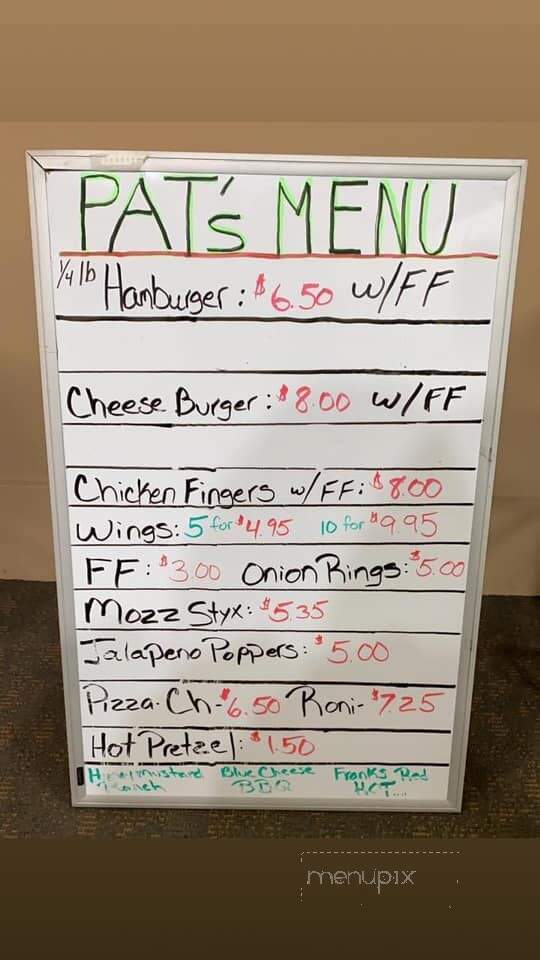 PAT's MENU
1/4 lb Hamburger: $6.50 w/FF
Cheese Burger: $8.00 w/FF
Chicken Fingers w/FF: $8.00
Wings: 5 for $4.95 10 for $9.95
FF: $3.00 Onion Rings: $5.00
Mozz Styx: $5.35
Jalapeno Poppers: $5.00
Pizza-Ch-$6.50 Roni-$7.25
Hot Pretzel: $1.50
Honey mustard Blue Cheese Franks Red
Ranch BBQ HOT...
menupix